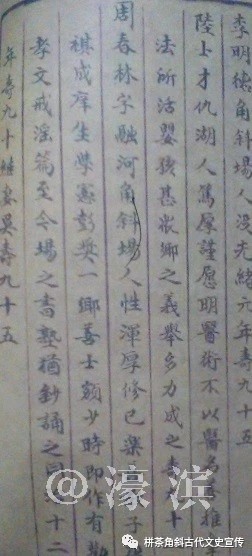 李明德角斜場人没光緒元年壽九十五
陸士才仇湖人篤厚謹愿明醫術不以醫名推
法所活嬰孩甚衆鄉之義舉多力成之壽九十
周春林字融河角斜場人性渾厚修己樂 子
祺成庠生學憲彭奬一鄉善士額少時即作有勸
孝文戒淫篇至今場之書塾猶鈔誦之 十二
年壽九十 妾吳壽九十五
@濠滨
栟茶角斜古代文史宣传